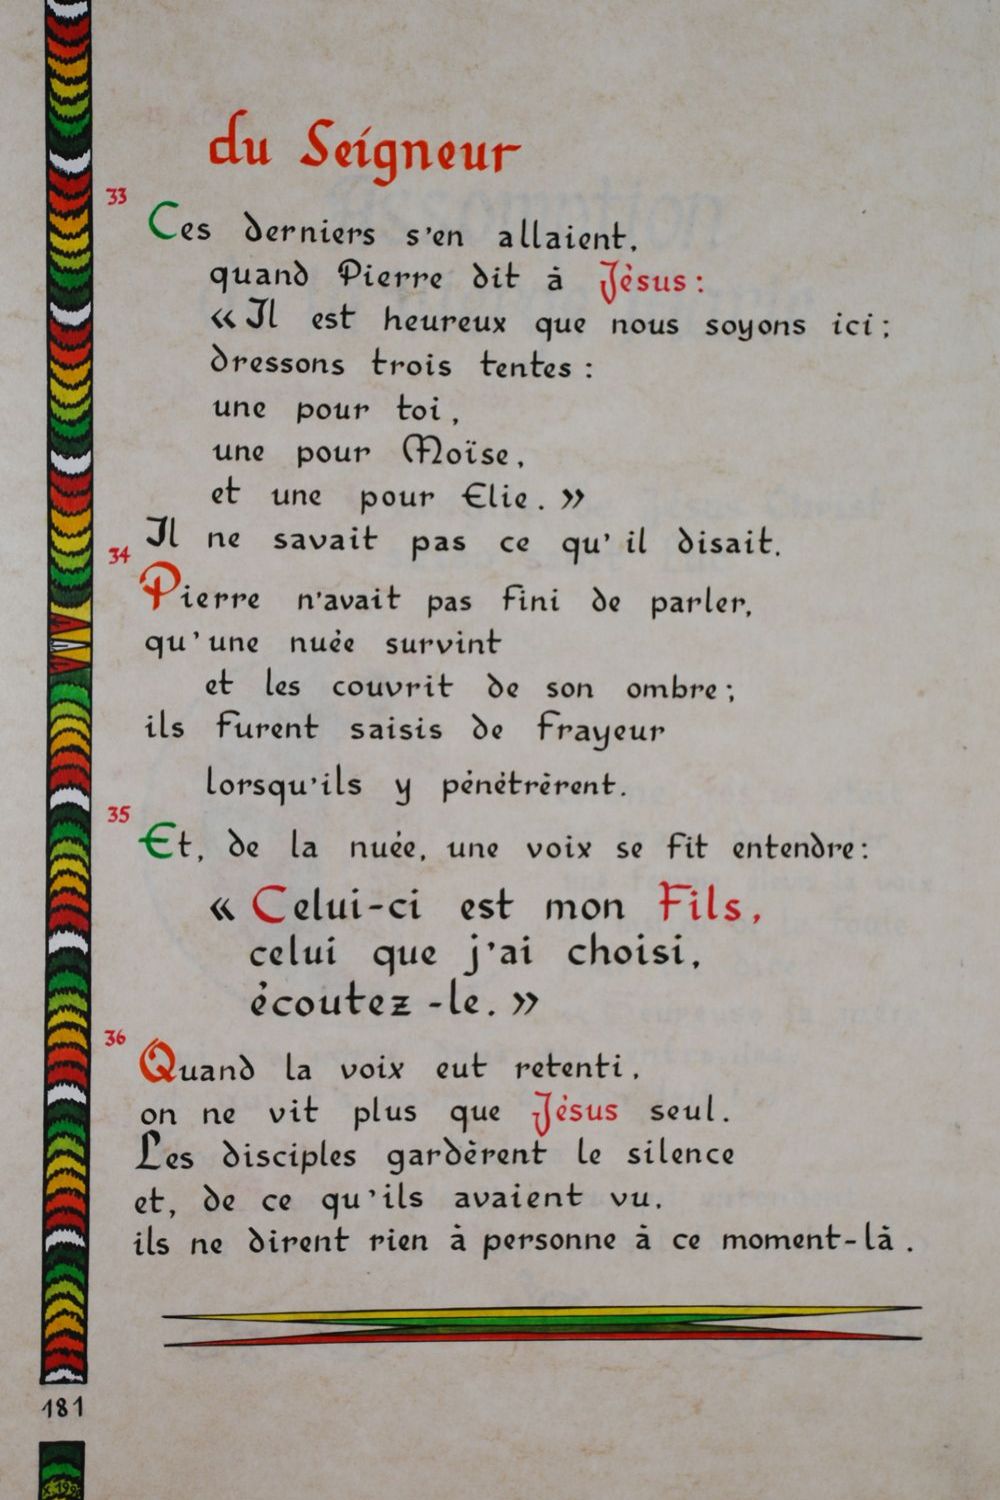 du Seigneur
33
Ces derniers s'en allaient,
quand Pierre dit à Jésus :
« Il est heureux que nous soyons ici ;
dressons trois tentes :
une pour toi,
une pour Moïse,
et une pour Elie. »
Il ne savait pas ce qu'il disait.
34
Pierre n'avait pas fini de parler,
qu'une nuée survint
et les couvrit de son ombre ;
ils furent saisis de frayeur
lorsqu'ils y pénétrèrent.
35
Et, de la nuée, une voix se fit entendre :
« Celui-ci est mon Fils,
celui que j'ai choisi,
écoutez-le. »
36
Quand la voix eut retenti,
on ne vit plus que Jésus seul.
Les disciples gardèrent le silence
et, de ce qu'ils avaient vu,
ils ne dirent rien à personne à ce moment-là.
181